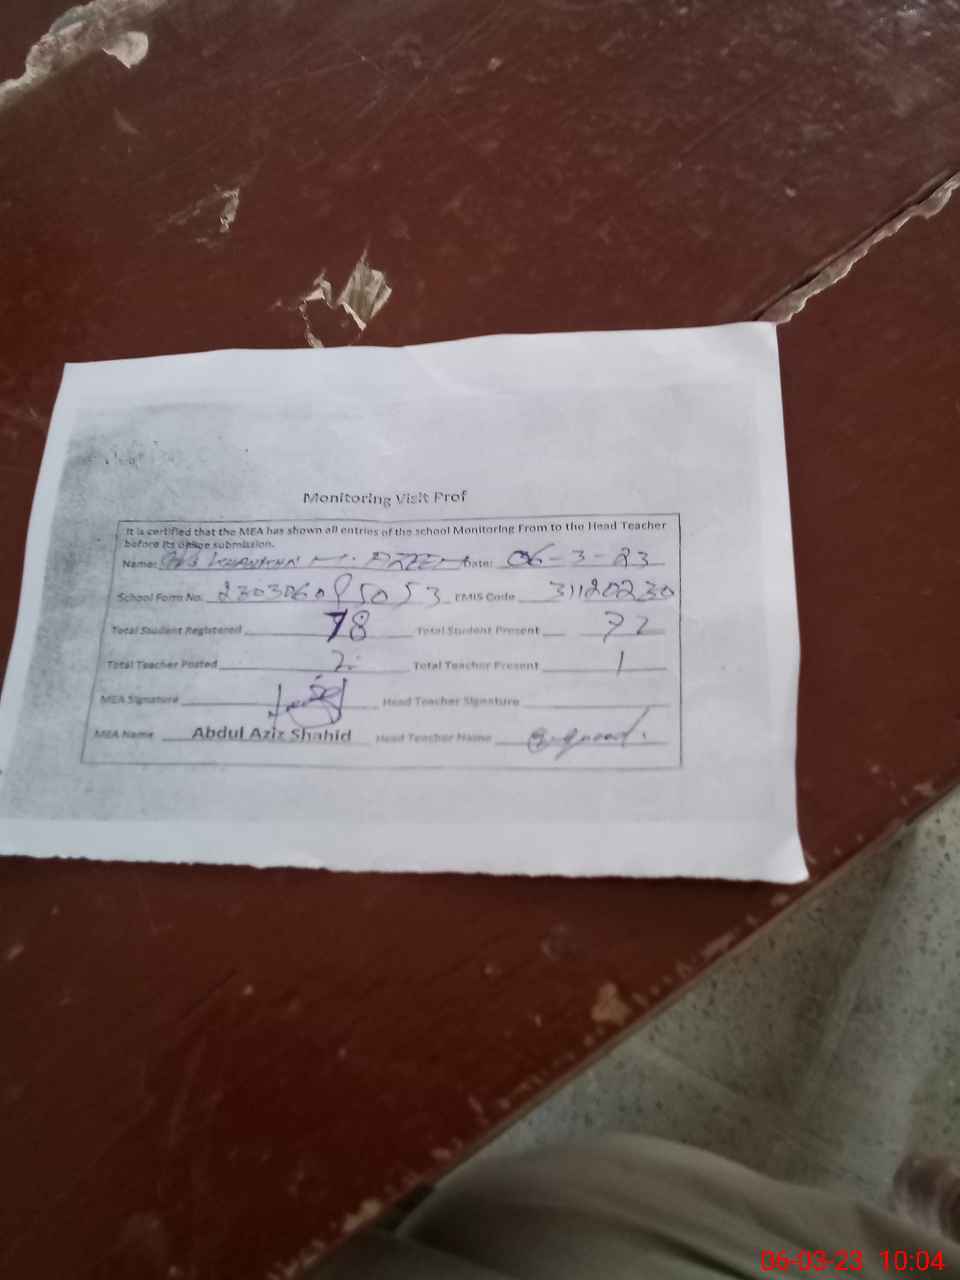 Monitoring Visit Prof
It is certified that the MEA has shown all entries of the school Monitoring From to the Head Teacher
before its online submission.
Name: M. AZEEM Date: 06-3-23
School Form No. 23030609 5053 EMIS Code 31120230
Total Student Registered 78 Total Student Present 72
Total Teacher Posted 2 Total Teacher Present 1
MEA Signature Head Teacher Signature
MEA Name Abdul Aziz Shahid Head Teacher Name
06-03-23 10:04